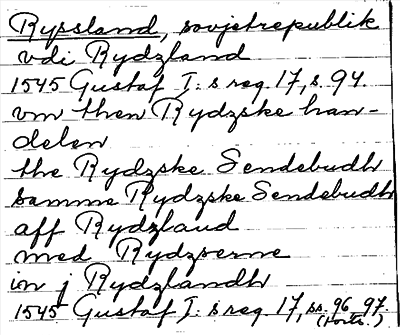 Ryssland, sovjetrepublik
vdi Rydzland
1545 Gustaf I: s reg. 17, s. 94.
vm then Rydzske han-
delen
the Rydzske Sendebudh
samme Rydzske Sendebudh
aff Rydzland
med Rydzserne
in j Rydzlandh
1545 Gustaf I: s reg. 17, ss. 96 97.
(Forts.)